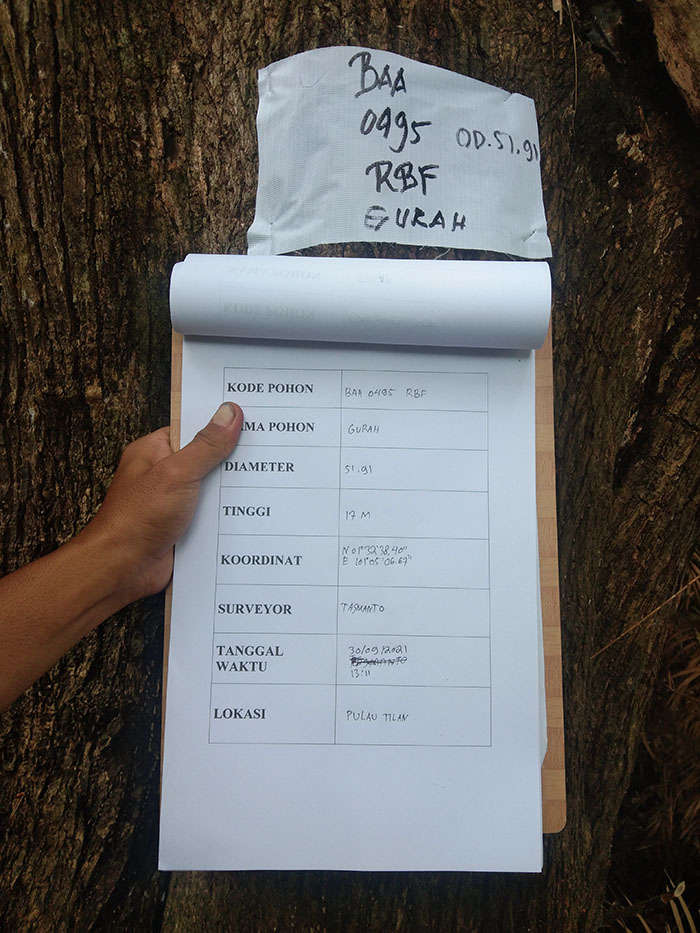 BAA
0495 OD.51,91
RBF
GURAH
NAMA POHON
KODE POHON
KODE POHON BAA 0495 RBF
AMA POHON GURAH
DIAMETER 51,91
TINGGI 17 M
KOORDINAT N 01°32'38,40"
E 101°05'06.67"
SURVEYOR TASMANTO
TANGGAL 30/09/2021
WAKTU 13:11
LOKASI PULAU TILAN